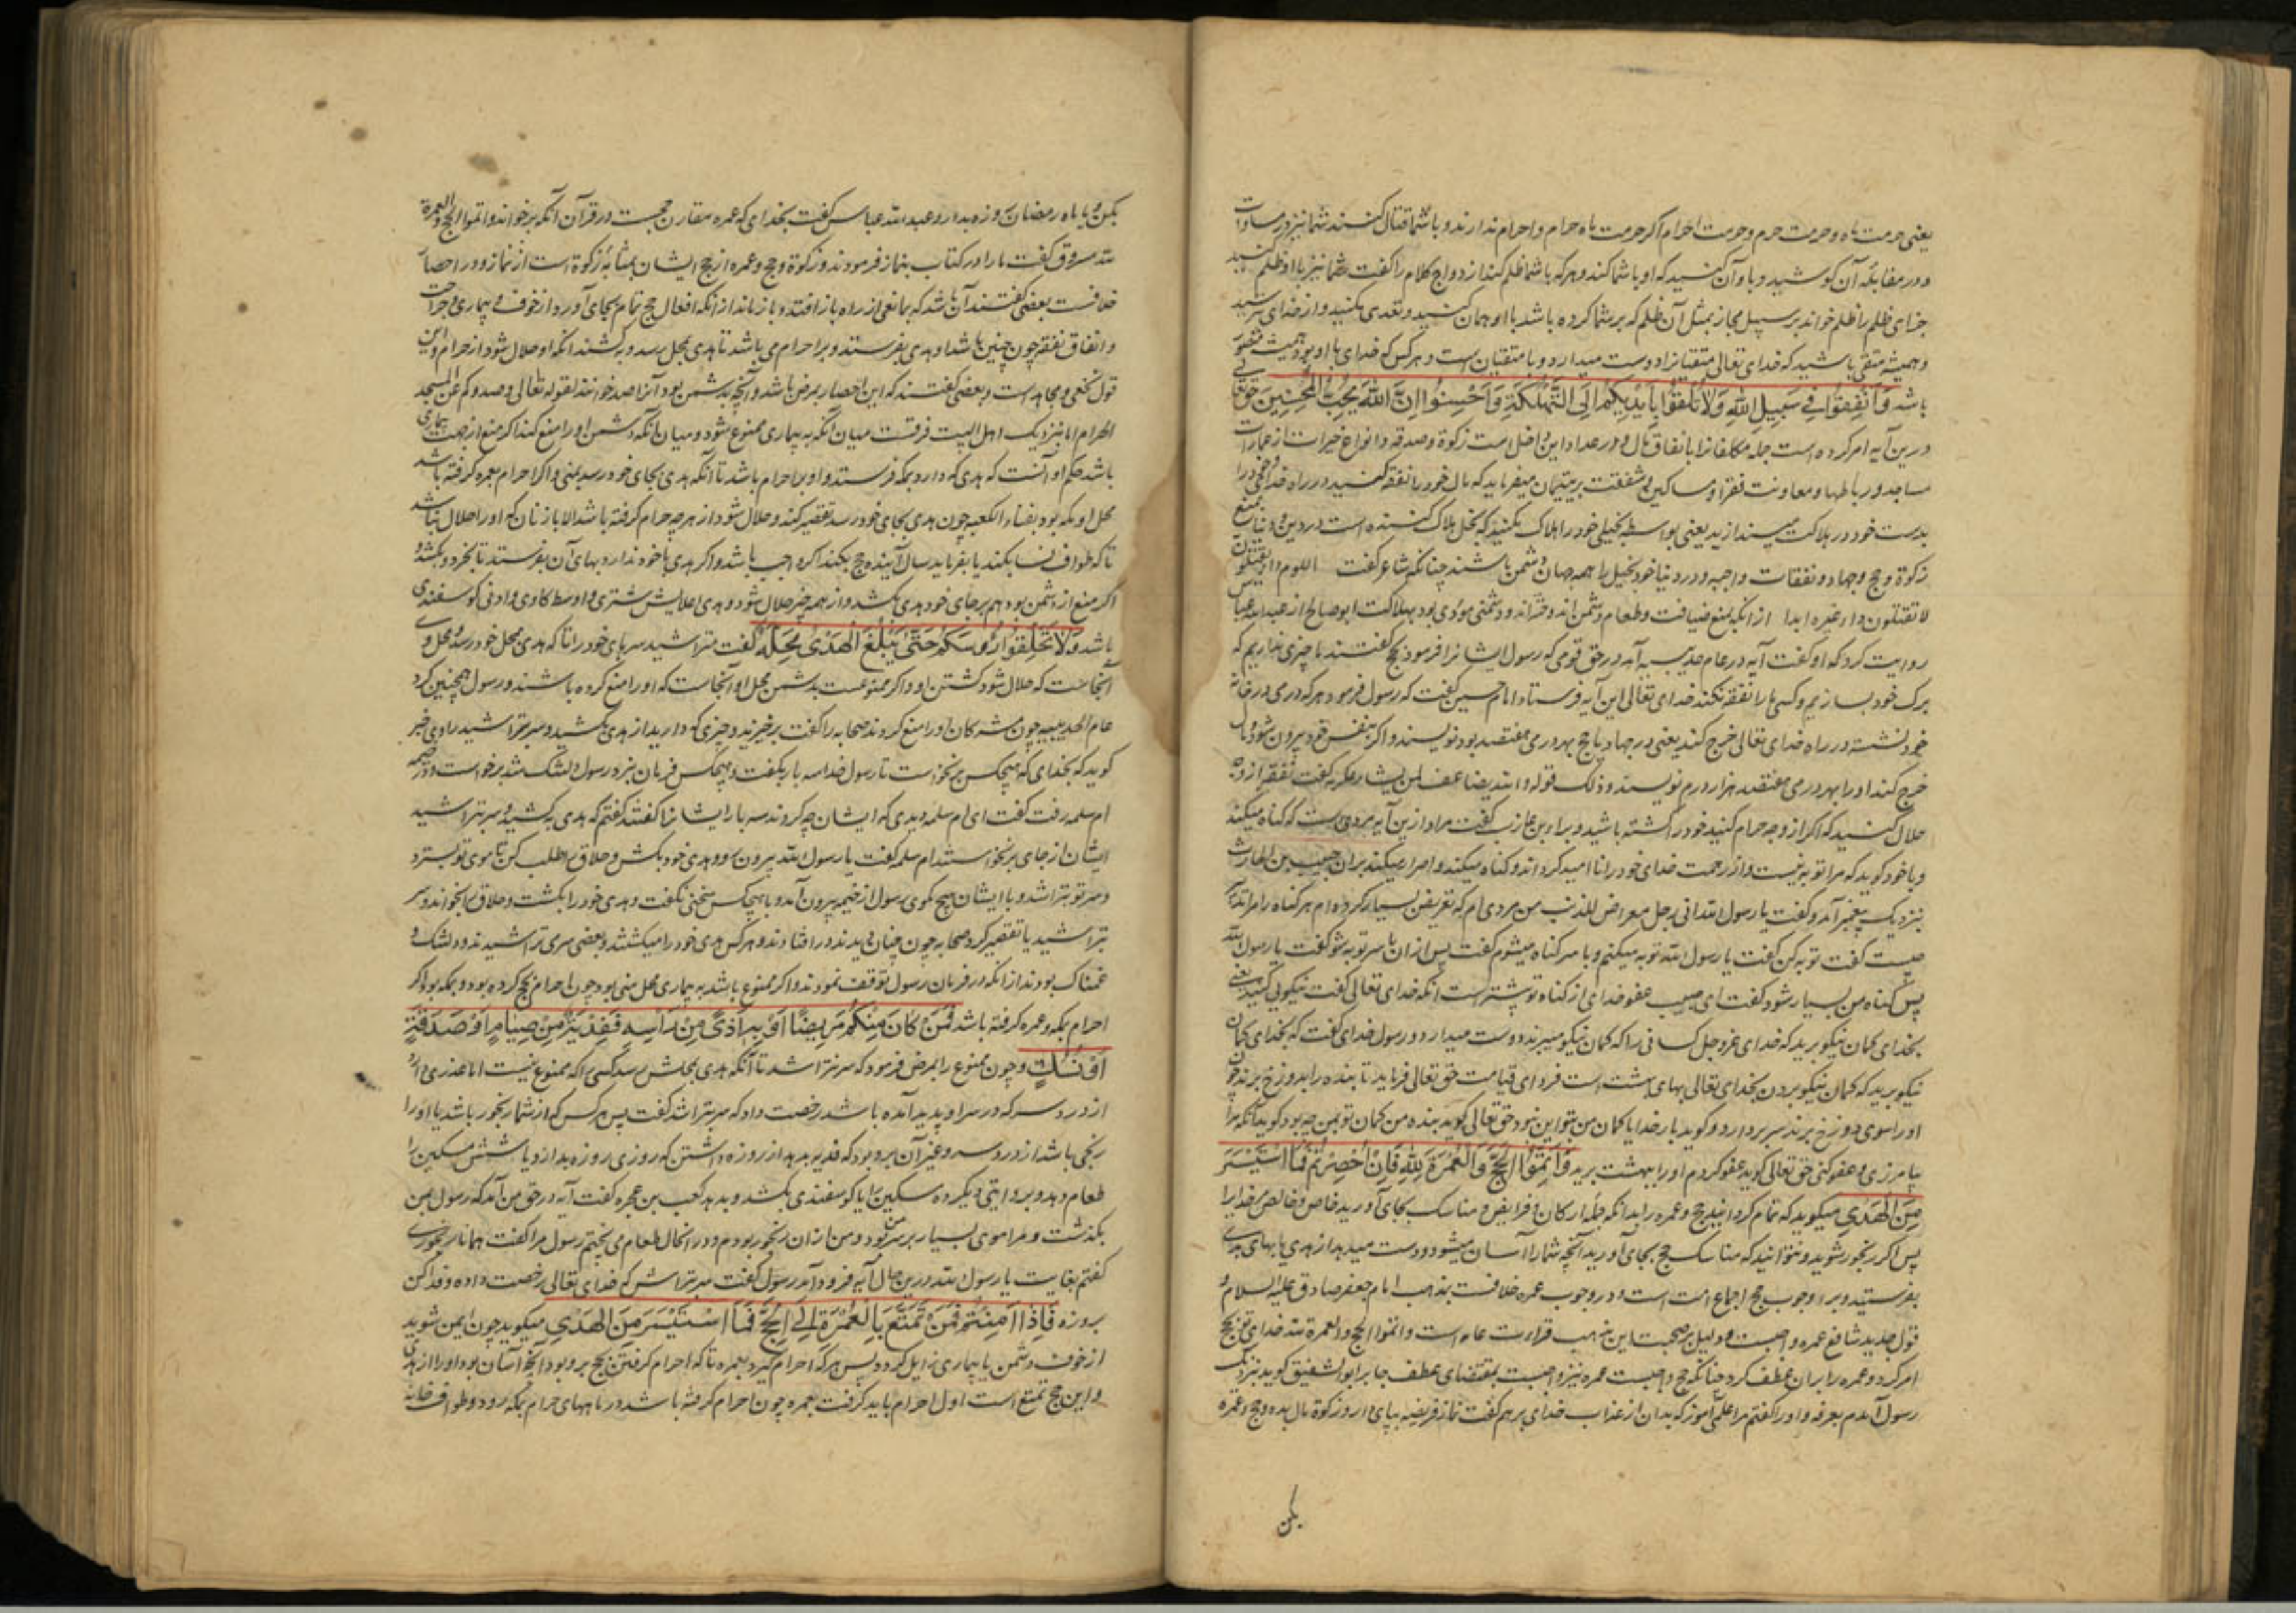 یعنی حرمت ماه و حرمت حرم و حرمت احرام اکر حرمت ماه حرام و احرام ندارند و با شما قتال کنند شما نیز در مساوات
و در مقابله آن کوشید و با او آن کنید که او با شما کند و هر که با شما ظلم کند ازدواج کلام را کفت شما نیز با او ظلم کنید
جزای ظلم را ظلم خواند بر سبیل مجاز بمثل آن ظلم که بر شما کرده باشد با او همان کنید و تعدی مکنید و از خدای بترسید
و همیشه متقی باشید که خدای تعالی متقیانرا دوست میدارد و با متقیان است و هر کس که خدای با او بود همیشه
باشد وَاَنفِقُوا فِي سَبِيلِ اللهِ وَلَا تُلْقُوا بِاَيْدِيكُمْ اِلَى التَّهْلُكَةِ وَاَحْسِنُوا اِنَّ اللهَ يُحِبُّ الْمُحْسِنِينَ حق تعالی
درین آیه امر کرده است جمله مکلفانرا بانفاق مال و در عداد این داخل است زکوة و صدقه و انواع خیرات از عمارات
مساجد و رباطها و معاونت فقرا و مساکین و شفقت بر یتیمان میفرماید که مال خود را نفقه کنید در راه خدا و خود را
بدست خود در هلاکت میندازید یعنی بواسطه بخیلی خود را هلاک مکنید که بخل هلاک کننده است در دین و دنیا
زکوة و حج و جهاد و نفقات واجبه و در دنیا خود بخیل را همه جهان دشمن باشند چنانکه شاعر کفت اللوم داء
لا تقتلون داء غیره ابدا از آنکه بمنع ضیافت و طعام دشمن اندوزد و دشمنی مؤدی بود بهلاکت ابو صالح از عبدالله عباس
روایت کرد که او کفت آیه در عام حدیبیه آمد در حق قومی که رسول ایشانرا فرمود بحج کفتند ما چیزی نداریم که
برک خود بسازیم و کسی ما را نفقه نکند خدای تعالی این آیه فرستاد امام حسین کفت که رسول فرمود هر که درمی در خانه
خود نشسته در راه خدای تعالی خرج کند یعنی در جهاد یا حج بهر درمی هفتصد بود نویسند و اکر بنفس خود بیرون شود و مال
خرج کند او را بهر درمی هفتصد هزار درم نویسند و ذلک قوله والله یضاعف لمن یشاء عکرمه کفت نفقه از وجه
حلال کنید که اکر از وجه حرام کنید خود را کشته باشید و براء بن عازب کفت مراد ازین آیه مردی است که کناه میکند
و با خود کوید که مرا توبه نیست و از رحمت خدای خود را ناامید کرداند و کناه میکند و اصرار میکند بران حبیب بن الحارث
نزدیک پیغمبر آمد و کفت یا رسول الله انی رجل معراض للذنب من مردی ام که تعرض بسیار کرده ام هر کناه را
چیست کفت توبه کن کفت یا رسول الله توبه میکنم و با سر کناه میشوم کفت پس ازان با سر توبه شو کفت یا رسول الله
پس کناه من بسیار شود کفت ای حبیب عفو خدای از کناه تو بیشتر است آنکه خدای تعالی کفت نیکویی کنید یعنی
بخدای کمان نیکو برید که خدای عز و جل کسانی را که کمان نیکو میبرند دوست میدارد و رسول خدای کفت که بخدای کمان
نیکو برید که کمان نیکو بردن بخدای تعالی بهای بهشت است فردای قیامت حق تعالی فرماید تا بنده را بدوزخ برند چون
او را سوی دوزخ برند سر بردارد و کوید بار خدایا کمان من بتو این نبود حق تعالی کوید بنده من کمان تو بمن چه بود کوید آنکه مرا
بیامرزی و عفو کنی حق تعالی کوید عفو کردم او را ببهشت برید وَاَتِمُّوا الْحَجَّ وَالْعُمْرَةَ لِلّٰهِ فَاِنْ اُحْصِرْتُمْ فَمَا اسْتَيْسَرَ
مِنَ الْهَدْيِ میکوید که تمام کردانید حج و عمره را بدانکه جمله ارکان و فرایض و مناسک بجای آورید خاص و خالص خدایرا
پس اکر رنجور شوید و نتوانید که مناسک حج بجای آورید آنچه شما را آسان میشود و دست میدهد از هدی یا بهای هدی
بفرستید و بر وجوب حج اجماع امت است و در وجوب عمره خلافست بمذهب امام جعفر صادق علیه السلام و
قول جدید شافعی عمره واجبست و دلیل بر صحت این مذهب قراءت عامه است واتموا الحج والعمرة لله خدای تعالی بحج
امر کرد و عمره را بران عطف کرد چنانکه حج واجبست عمره نیز واجبست بمقتضای عطف جابر ابو الشفیق کوید نزدیک
رسول آمدم بعرفه و او را کفتم مرا علمی آموز که بدان از عذاب خدای برهم کفت نماز فریضه بپای دار و زکوة مال بده و حج و عمره
بکن
بکن و با ماه رمضان روزه بدار و عبد الله عباس کفت بخدای که عمره مقارن حجست در قرآن آنکه برخواند واتموا الحج والعمرة
لله مسروق کفت ما را در کتاب بنماز فرمودند و زکوة و حج و عمره از حج ایشان بمثابه زکوة است از نماز و در احصار
خلافست بعضی کفتند آن باشد که بمانعی از راه باز افتد و باز ماند از آنکه افعال حج تمام بجای آورد از خوف و بیماری و جراحت
و انفاق نفقه چون چنین باشد او هدی بفرستد و بر احرام می باشد تا هدی بمحل رسد و بکشند آنکه او حلال شود از حرام و این
قول نخعی و مجاهد است و بعضی کفتند که این احصار بمرض باشد و آنچه بدشمن بود آنرا صد خوانند لقوله تعالی وصدوکم عن المسجد
الحرام اما بنزدیک اهل البیت فرقست میان آنکه به بیماری ممنوع شود و میان آنکه دشمن او را منع کند اکر منع از جهت بیماری
باشد حکم او آنست که هدی که دارد بمکه فرستد و او بر احرام باشد تا آنکه هدی بجای خود رسد بمنی و اکر احرام بعمره کرفته باشد
محل او مکه بود بفناء الکعبه چون هدی بجای خود رسد تقصیر کند و حلال شود از هر چه حرام کرفته باشد الا باز زنان که او را حلال نباشد
تا که طواف نسا بکند یا بفرماید سال آینده حج بکند اکر واجب باشد و اکر هدی با خود ندارد بهای آن بفرستد تا بخرند و بکشند و
اکر منع از دشمن بود هم بر جای خود هدی بکشد و از همه چیز حلال شود و هدی اعلایش شتری و اوسط کاوی و ادنی کوسفندی
باشد وَلَا تَحْلِقُوا رُؤُسَكُمْ حَتّٰى يَبْلُغَ الْهَدْيُ مَحِلَّهُ کفت متراشید سرهای خود را تا که هدی بمحل خود رسد و محل وی
آنجاست که حلال شود کشتن او و اکر ممنوعست بدشمن محل او آنجاست که او را منع کرده باشند و رسول همچنین کرد
عام الحدیبیه چون مشرکان او را منع کردند صحابه را کفت برخیزید و چیزی که دارید از هدی بکشید و سر بتراشید راوی خبر
کوید که بخدای که هیچکس برنخواست تا رسول خدا سه بار بکفت و هیچکس فرمان نبرد رسول دلتنک شد برخواست و در خیمه
ام سلمه رفت کفت ای ام سلمه دیدی که ایشان چه کردند سه بار ایشانرا کفتم که هدی بکشید و سر بتراشید
ایشان از جای برنخواستند ام سلمه کفت یا رسول الله بیرون رو و هدی خود بکش و حلاق طلب کن تا موی تو بسترد
و سر تو بتراشد و با ایشان هیچ مکوی رسول از خیمه بیرون آمد و با هیچکس سخنی نکفت و هدی خود را بکشت و حلاق را بخواند و سر
بتراشید یا تقصیر کرد صحابه چون چنان بدیدند در افتادند و هر کس هدی خود را میکشتند و بعضی سر می تراشیدند و دلتنک و
غمناک بودند از آنکه در فرمان رسول توقف نمودند و اکر ممنوع باشد به بیماری محل منی بود چون احرام بحج کرده بود و بمکه بود اکر
احرام بمکه و عمره کرفته باشد فَمَنْ كَانَ مِنْكُمْ مَرِيضًا اَوْ بِهِ اَذًى مِنْ رَأْسِهِ فَفِدْيَةٌ مِنْ صِيَامٍ اَوْ صَدَقَةٍ
اَوْ نُسُكٍ و چون ممنوع را بمرض فرمود که سر نتراشد تا آنکه هدی بجایش رسد کسی را که ممنوع نیست اما عذری دارد
از درد سر که در سر او پدید آمده باشد رخصت داد که سر بتراشد کفت پس هر کس که از شما رنجور باشد یا او را
رنجی باشد از درد سر و غیر آن بر و بود که فدیه بدهد از روزه داشتن که روزی روزه بدارد یا شش مسکین را
طعام دهد و بروایتی دیکر ده مسکین را یا کوسفندی بکشد و بدهد کعب بن عجره کفت آیه در حق من آمد که رسول بمن
بکذشت و مرا موی بسیار بر سر بود و من ازان رنجور بودم و در انحال طعام می پختم رسول مرا کفت همانا رنجوری
کفتم بغایت یا رسول الله درین حال آیه فرود آمد رسول کفت سر بتراش که خدای تعالی رخصت داده و فدا کن
بروزه فَاِذَا اَمِنْتُمْ فَمَنْ تَمَتَّعَ بِالْعُمْرَةِ اِلَى الْحَجِّ فَمَا اسْتَيْسَرَ مِنَ الْهَدْيِ میکوید چون ایمن شوید
از خوف دشمن یا بیماری زایل کردد پس هر که احرام کیرد بعمره تا که احرام کرفتن بحج برو بود آنچه آسان بود او را از هدی
و این حج تمتع است اول احرام باید کرفت بعمره چون احرام کرفته باشد در ماههای حرام بمکه رود و طواف خانه